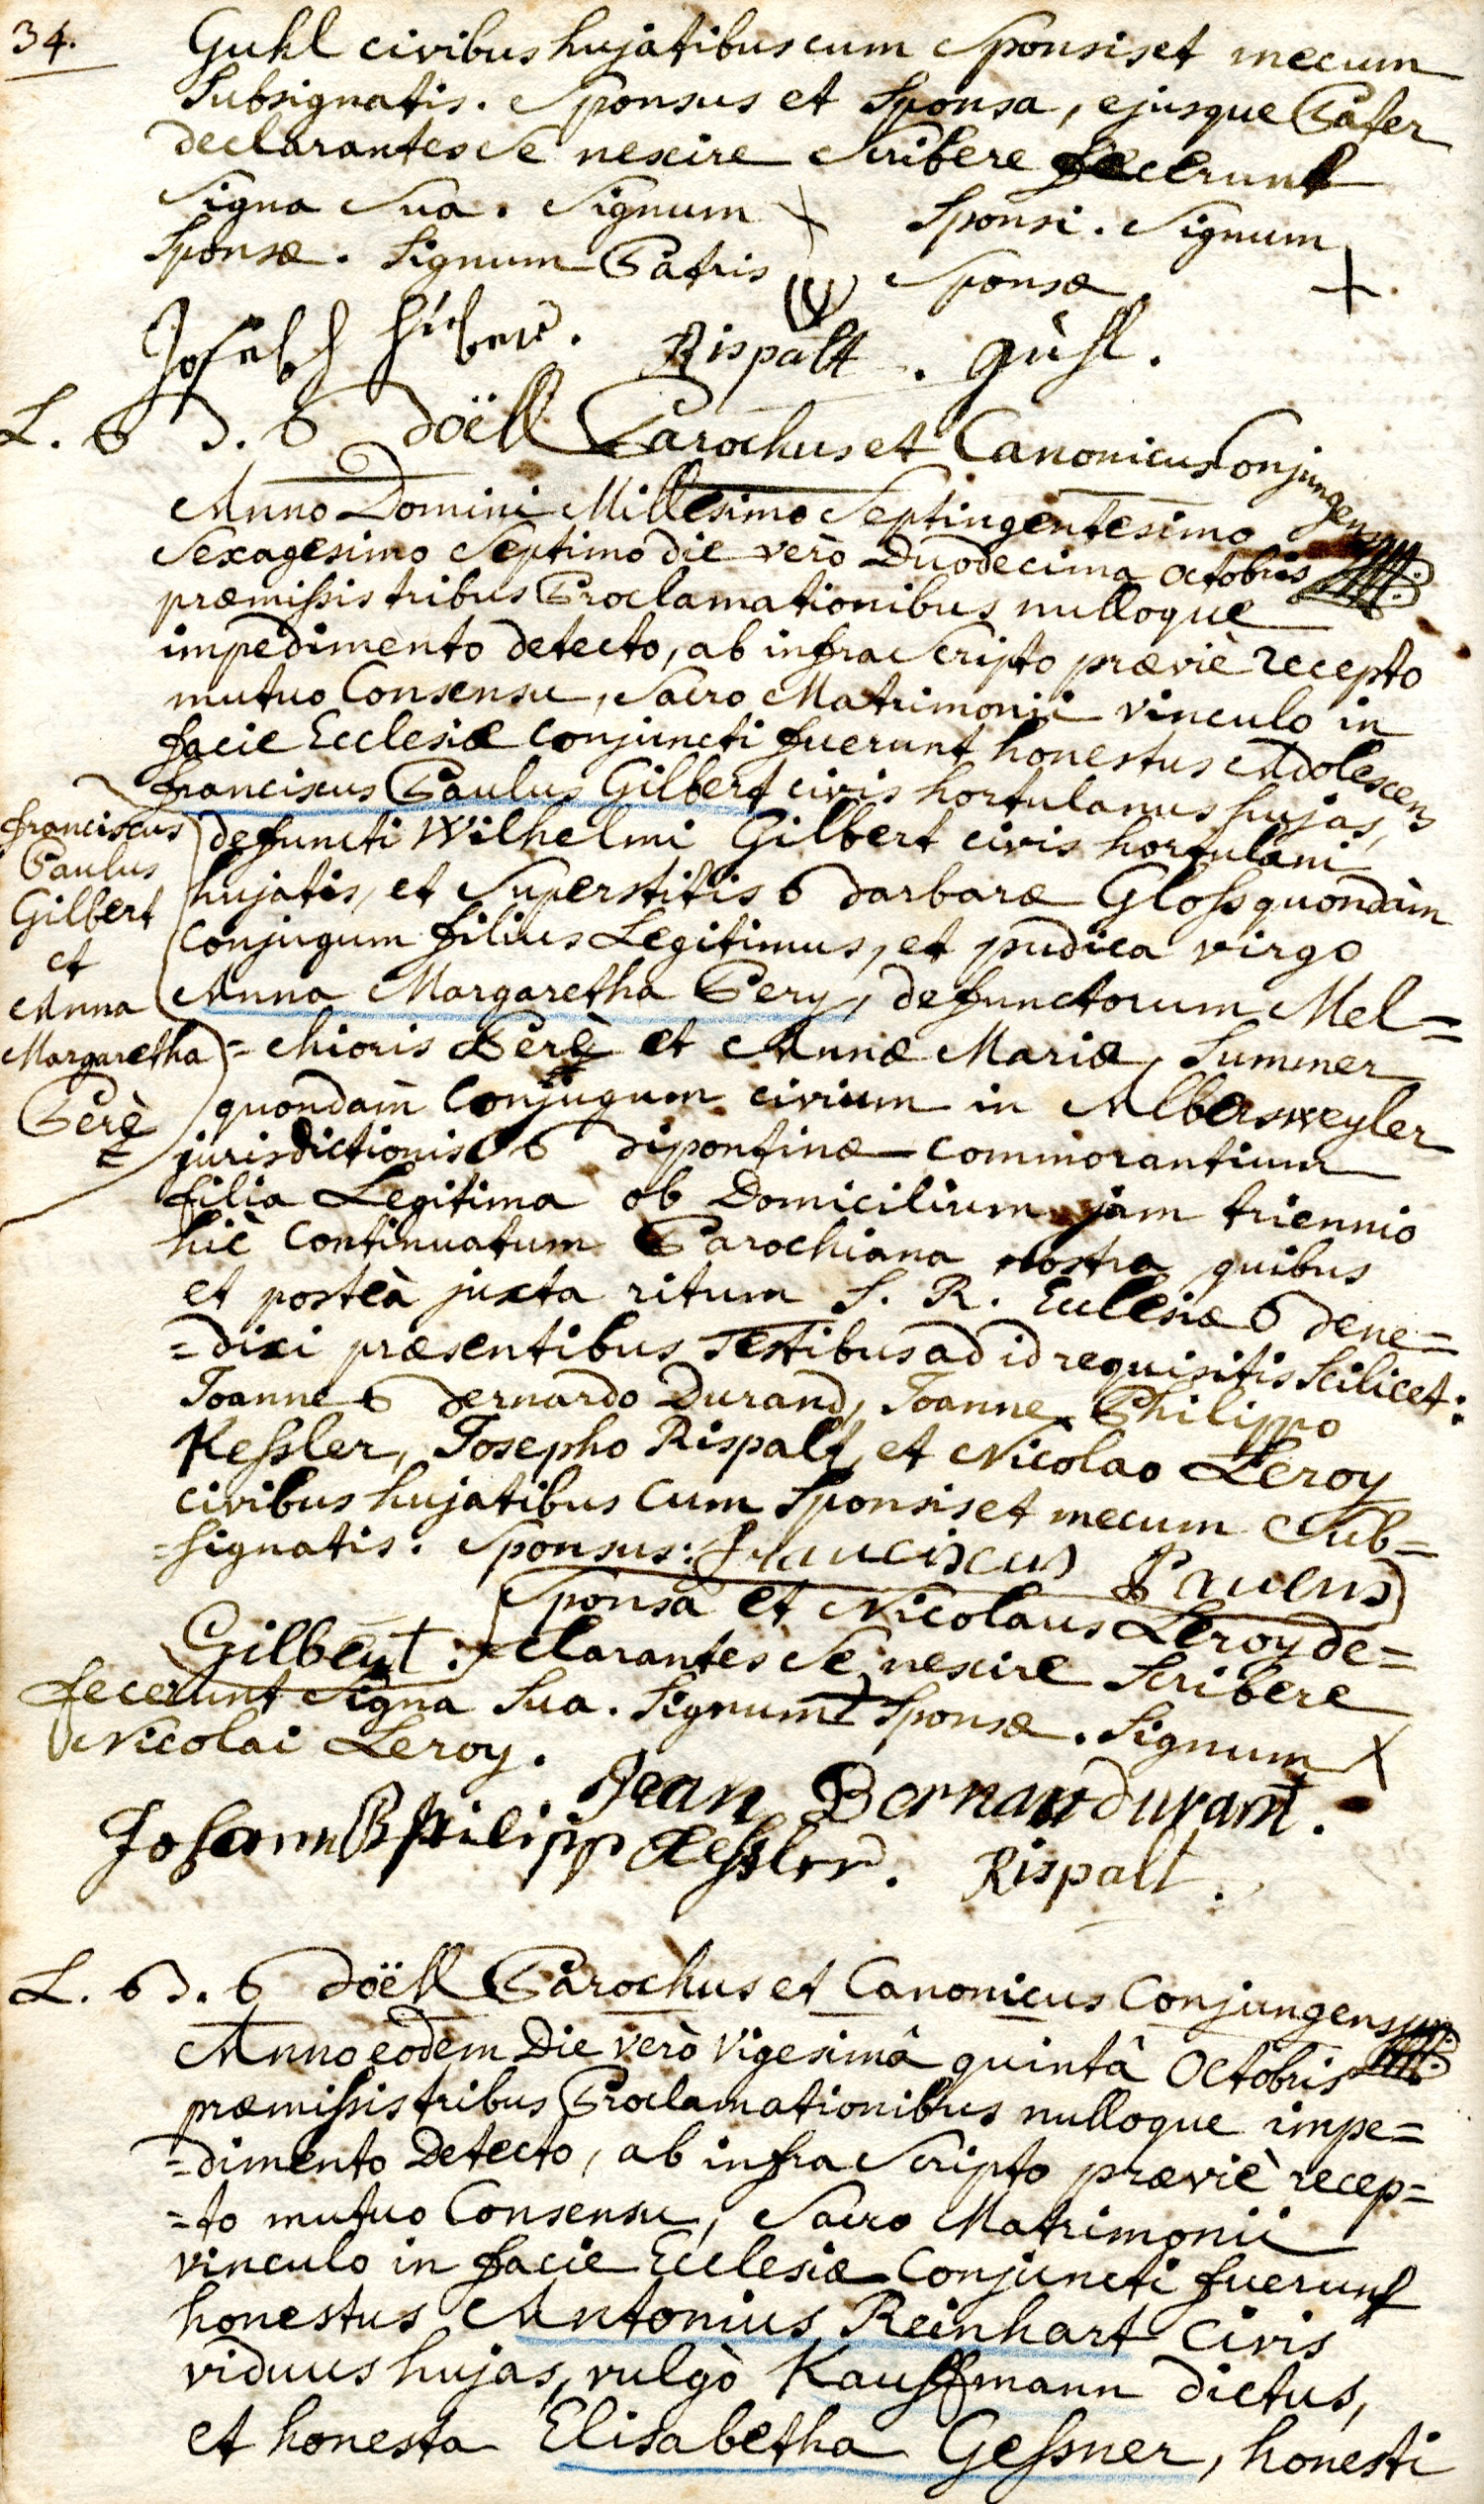 34.
Guhl civibus hujatibus cum Sponsis et mecum
Subsignatis. Sponsus et Sponsa, ejusque Pater
declarantes Se nescire Scribere fecerunt
Signa Sua. Signum + Sponsi. Signum
Sponsæ. Signum Patris Sponsæ +
Joseph Huber. Rispalt. gühl.
L. B. Boëll Parochus et Canonicus Conjungens
Anno Domini Millesimo Septingentesimo
Sexagesimo Septimo die verò Duodecima Octobris
præmissis tribus Proclamationibus nulloque
impedimento detecto, ab infra Scripto præviè recepto
mutuo Consensu, Sacro Matrimonii vinculo in
facie Ecclesiæ Conjuncti fuerunt honestus Adolescens
franciscus Paulus Gilbert civis hortulanus hujas,
defuncti Wilhelmi Gilbert civis hortulani
hujatis, et Superstitis Barbaræ Gloss quondàm
Conjugum filius Legitimus, et pudica virgo
Anna Margaretha Pery, defunctorum Mel=
=chioris Perè et Annæ Mariæ, Summer
quondàm Conjugum civium in Albersweyler
jurisdictionis Bipontinæ commorantium
filia Legitima ob Domicilium jam triennio
hìc Continuatum Parochiana nostra quibus
et posteà juxta ritum S. R. Ecclesiæ Bene=
=dixi præsentibus Testibus ad id requisitis Scilicet:
Joanne Bernardo Durand, Joanne Philippo
Kessler, Josepho Rispalt, et Nicolao Leroy
civibus hujatibus Cum Sponsis et mecum Sub=
=signatis: Sponsus: franciscus Paulus
Gilbert: Sponsa et Nicolaus Leroy de=
clarantes Se nescire Scribere
fecerunt Signa Sua. Signum + Sponsæ. Signum X
Nicolai Leroy.
Jean Bernar durant.
Johann Philipp Kessler. Rispalt.
franciscus
Paulus
Gilbert
et
Anna
Margaretha
Perè
L. B. Boëll Parochus et Canonicus Conjungens
Anno eodem Die verò Vigesimâ quintâ Octobris
præmissis tribus Proclamationibus nulloque impe=
=dimento Detecto, ab infra Scripto præviè recep=
=to mutuo Consensu, Sacro Matrimonii
vinculo in facie Ecclesiæ Conjuncti fuerunt
honestus Antonius Reinhart Civis
viduus hujas, vulgò Kauffmann dictus,
et honesta Elisabetha Gessner, honesti